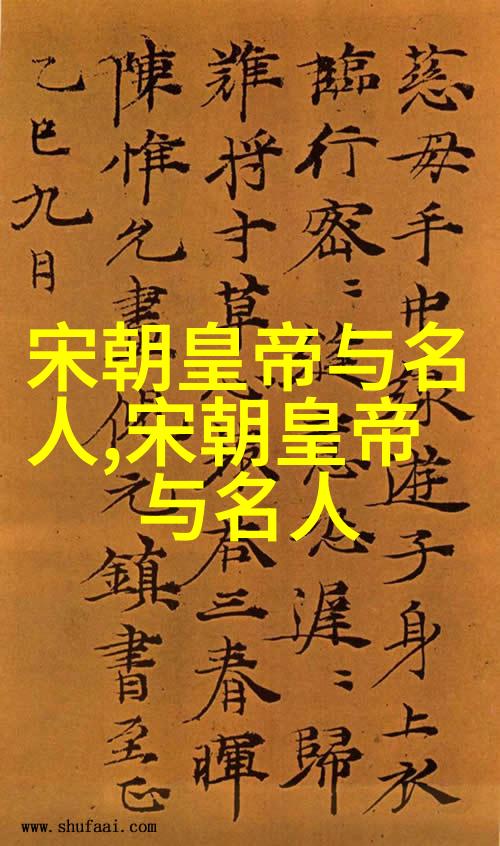 慈母手中線遊子身上衣
臨行密〻縫意恐遲〻歸
難将寸草心報答三春暉
陳惟允畫倪元鎮書至正
乙巳九月
宋朝皇帝与名
人,宋朝皇帝
与名人
www.shufaai.com